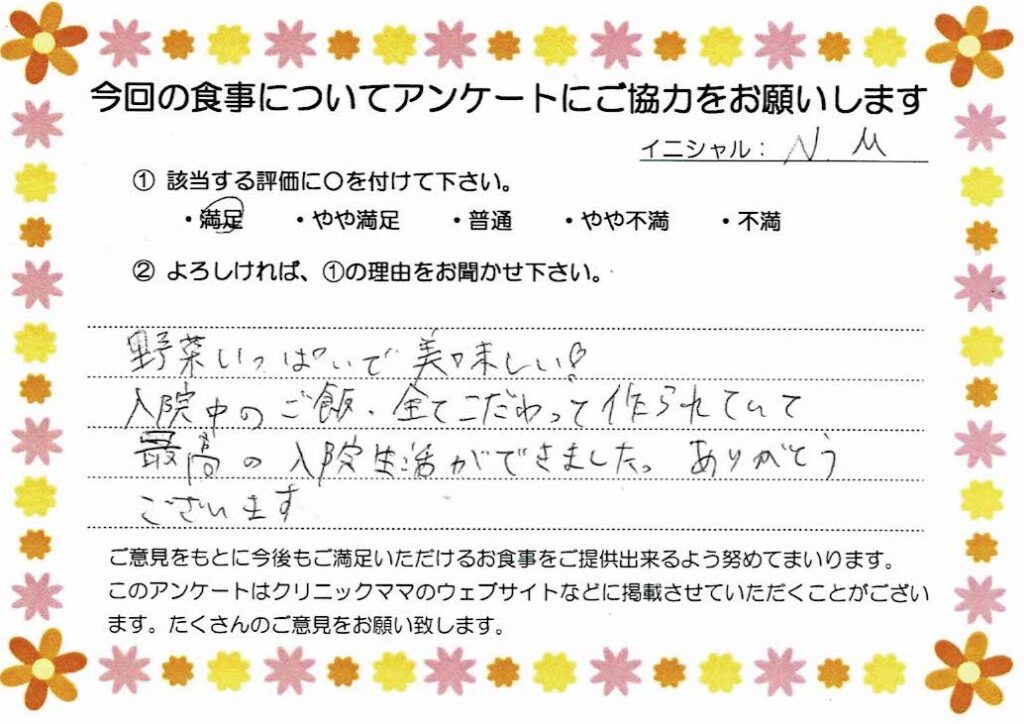 今回の食事についてアンケートにご協力をお願いします
イニシャル： N. M
① 該当する評価に〇を付けて下さい。
・満足 ・やや満足 ・普通 ・やや不満 ・不満
② よろしければ、①の理由をお聞かせ下さい。
野菜いっぱいで美味しい♡
入院中のご飯、全てこだわって作られていて
最高の入院生活ができました。ありがとう
ございます
ご意見をもとに今後もご満足いただけるお食事をご提供出来るよう努めてまいります。
このアンケートはクリニックママのウェブサイトなどに掲載させていただくことがござい
ます。たくさんのご意見をお願い致します。